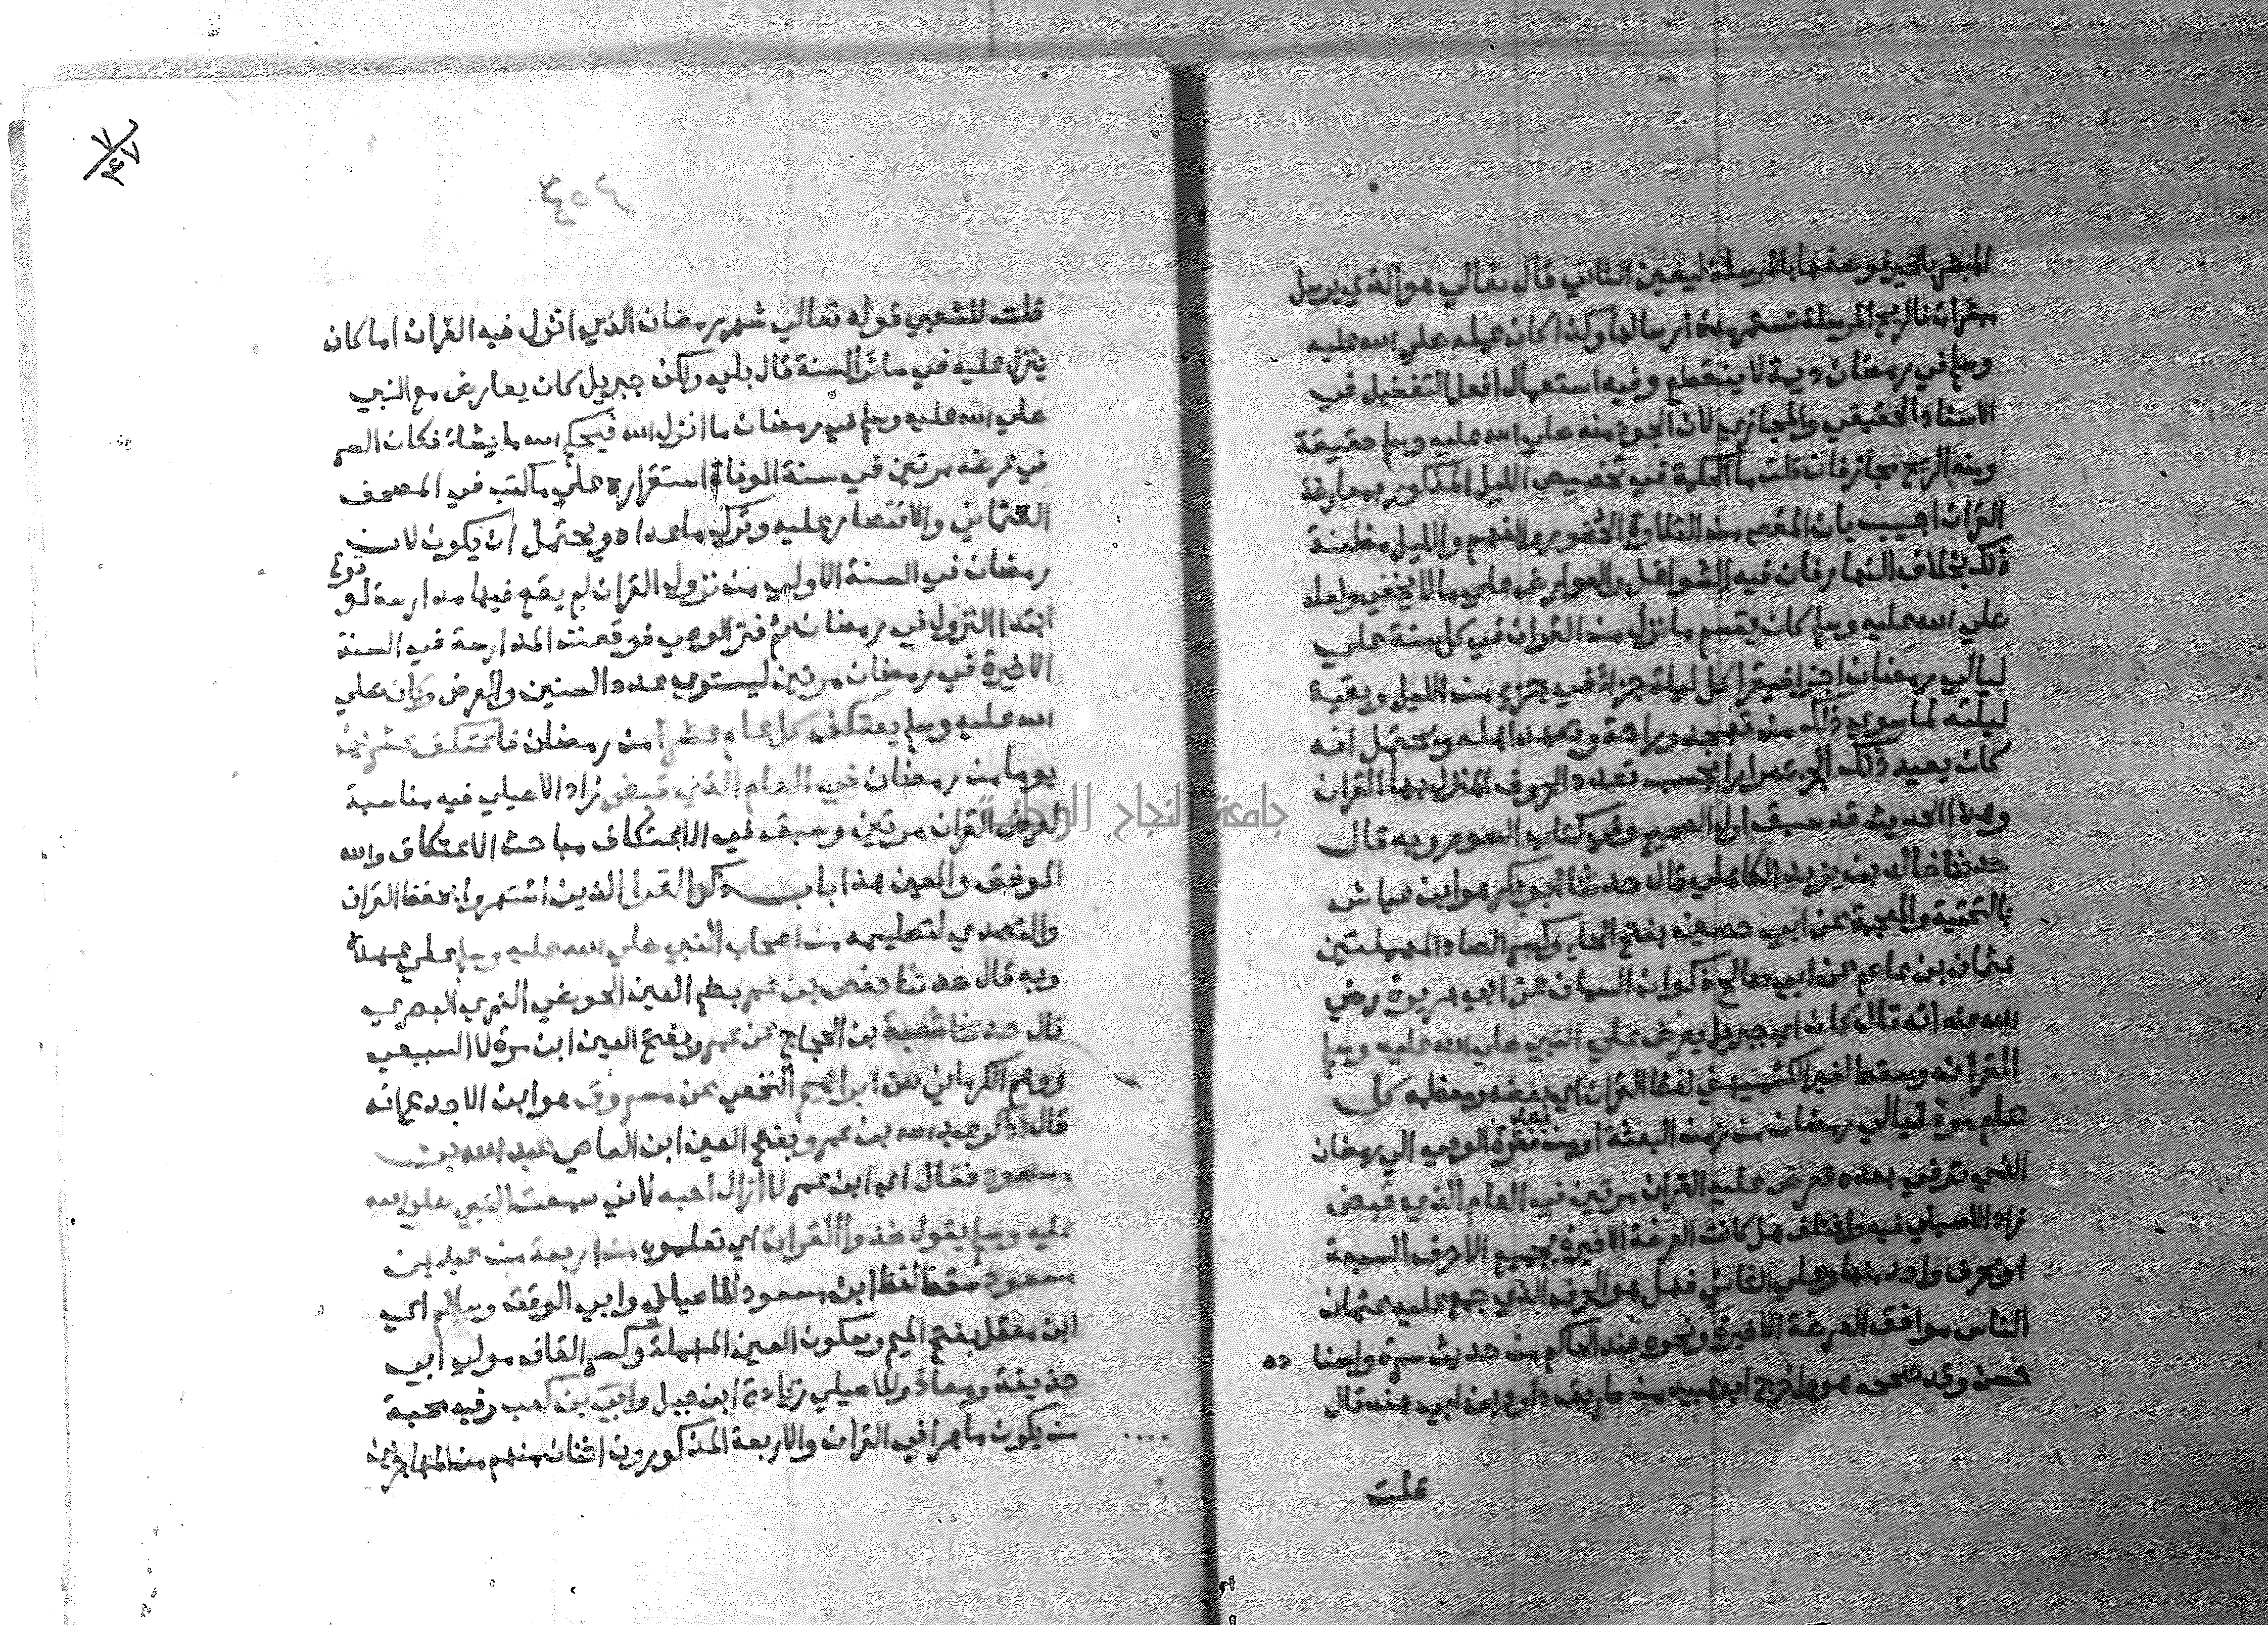 المبشر بالخير فوصفها بالمرسلة ليعين الثاني قال تعالي هو الذي يرسل
مبشرات فالريح المرسلة تستمر مدة ارسالها وكذا كان عمله صلي الله عليه
وسلم في رمضان ديمة لا ينقطع وفيه استعمال افعل التفضيل في
الاسناد الحقيقي والمجازي لان الجود منه صلي الله عليه وسلم حقيقة
ومن الريح مجاز فان قلت ما الحكمة في تخصيص الليل المذكور بمعارضة
القران اجيب بان المقصد من التلاوة الحضور والفهم والليل مظنة
ذلك بخلاف النهار فان فيه الشواغل والعوارض علي ما لا يخفي ولعله
صلي الله عليه وسلم كان يقسم ما نزل من القران في كل سنة علي
ليالي رمضان اجزا فيقرا كل ليلة جزءا في جزء من الليل وبقية
ليلته لما سوي ذلك من تهجد وراحة وتعهد اهله ويحتمل انه
كان يعيد ذلك الجزء مرارا بحسب تعدد الحروف المنزل بها القران
وهذا الحديث قد سبق اول الصحيح وفي كتاب الصوم وبه قال
حدثنا خالد بن يزيد الكاهلي قال حدثنا ابو بكر هو ابن عياش
بالتحتية والمعجمة عن ابي حصين بفتح الحاء وكسر الصاد المهملتين
عثمان بن عاصم عن ابي صالح ذكوان السمان عن ابي هريرة رضي
الله عنه انه قال كان اي جبريل يعرض علي النبي صلي الله عليه وسلم
القران وسقط لغير الكشميهني لفظ القران اي بعضه او معظمه كل
عام مرة ليالي رمضان من زمن البعثة او من بعد فترة الوحي الي رمضان
الذي توفي بعده فعرض عليه القران مرتين في العام الذي قبض
زاد الاصيلي فيه واختلف هل كانت العرضة الاخيرة بجميع الاحرف السبعة
او بحرف واحد منها وعلي الثاني فهل هو الحرف الذي جمع عليه عثمان
الناس موافق العرضة الاخيرة ونحوه عند الحاكم من حديث سمرة واسنا ده
حسن وقد صححه هو واخرج ابو عبيد من طريق داود بن ابي هند قال
قلت
٣٥٤
٧
٣٤٧
قلت للشعبي قوله تعالي شهر رمضان الذي انزل فيه القران اما كان
ينزل عليه في سائر السنة قال بلي ولكن جبريل كان يعارض مع النبي
صلي الله عليه وسلم في رمضان ما انزل الله فيحكم الله ما يشاء فكان السر
في عرضه مرتين في سنة الوفاة استقراره علي ما كتب في المصحف
العثماني والاقتصار عليه وترك ما عداه ويحتمل ان يكون لان
رمضان في السنة الاولي من نزول القران لم يقع فيها مدارسة لوقوع
ابتدا النزول في رمضان ثم فتر الوحي فوقعت المدارسة في السنة
الاخيرة في رمضان مرتين ليستوي عدد السنين والعرض وكان صلي
الله عليه وسلم يعتكف كل عام عشرا من رمضان فاعتكف عشرين
يوما من رمضان في العام الذي قبض زاد الاصيلي فيه مناسبة
لعرض القران مرتين وسبق في الاعتكاف مباحث الاعتكاف والله
الموفق والمعين هذا باب ذكر القرا الذين اشتهروا بحفظ القران
والتصدي لتعليمه من اصحاب النبي صلي الله عليه وسلم علي عهده
وبه قال حدثنا حفص بن عمر بضم العين الحوضي النمري البصري
قال حدثنا شعبة بن الحجاج عن عمرو بفتح العين ابن مرة لا السبيعي
ووهم الكرماني عن ابراهيم النخعي عن مسروق هو ابن الاجدع انه
قال ذكر عبد الله بن عمرو بفتح العين ابن العاصي عبد الله بن
مسعود فقال اي ابن عمر لا ازال احبه لاني سمعت النبي صلي الله
عليه وسلم يقول خذوا القران اي تعلموه من اربعة من عبد بن
مسعود سقط لفظ ابن مسعود للاصيلي وابي الوقت وسالم اي
ابن معقل بفتح الميم وسكون العين المهملة وكسر القاف مولي ابي
حذيفة ومعاذ وللاصيلي زيادة ابن جبل وابي بن كعب وفيه محبة
من يكون ماهرا في القران والاربعة المذكورون اثنان منهم من المهاجرين
جامعة النجاح الوطنية